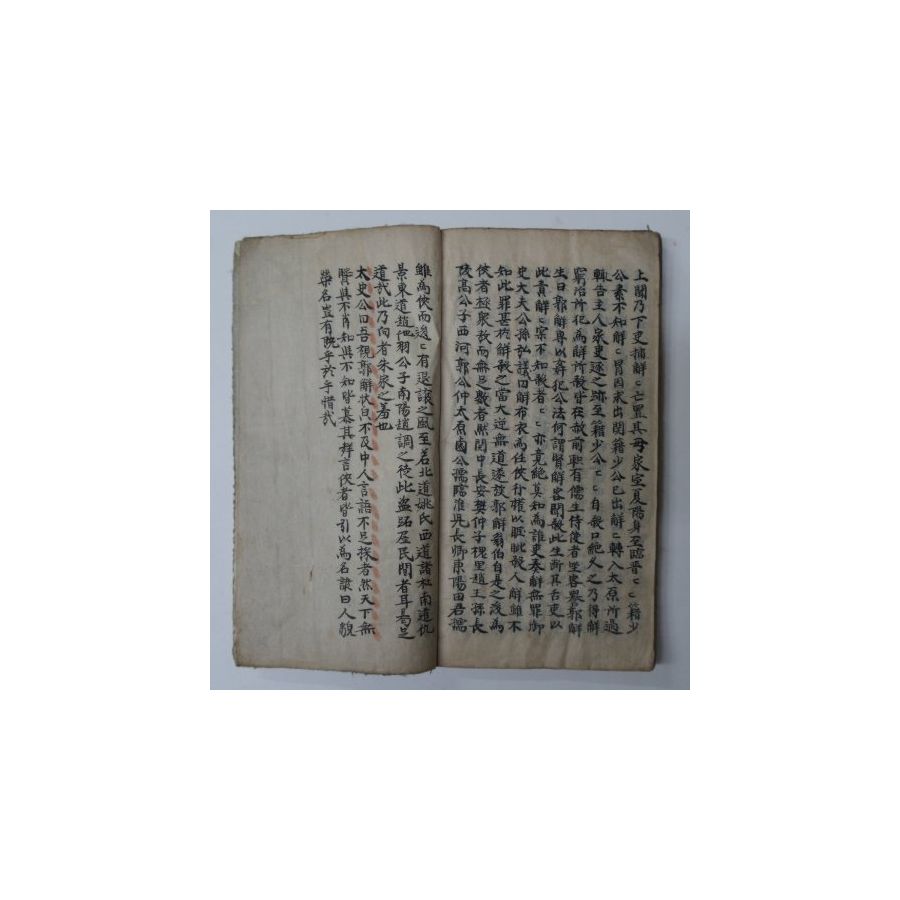 上聞乃下吏捕解〻亡置其母家室夏陽身至臨晋〻〻籍少
公素不知解〻冒因求出関籍少公已出解〻轉入太原所過
輒告主人家吏逐之跡至籍少公〻〻自殺口絶久之乃得解
窮治所犯為解所殺皆在赦前軹有儒生侍使者坐客譽郭解
生曰郭解專以奸犯公法何謂賢解客聞殺此生断其舌吏以
此責解〻実不知殺者〻〻亦竟絶莫知為誰吏奏解無罪御
史大夫公孫弘議曰解布衣為任俠行權以睚眦殺人解雖不
知此罪甚於解殺之當大逆無道遂族郭解翁伯自是之後為
俠者極衆敖而無足數者然関中長安樊仲子槐里趙王孫長
陵高公子西河郭公仲太原鹵公孺臨淮兒長卿東陽田君孺
雖為俠而逡〻有退讓之風至若北道姚氏西道諸杜南道仇
景東道趙他羽公子南陽趙調之徒此盗跖居民間者耳曷足
道哉此乃向者朱家之羞也
太史公曰吾視郭解狀皃不及中人言語不足採者然天下無
賢與不肖知與不知皆慕其聲言俠者皆引以為名諺曰人貌
榮名豈有旣乎於乎惜哉